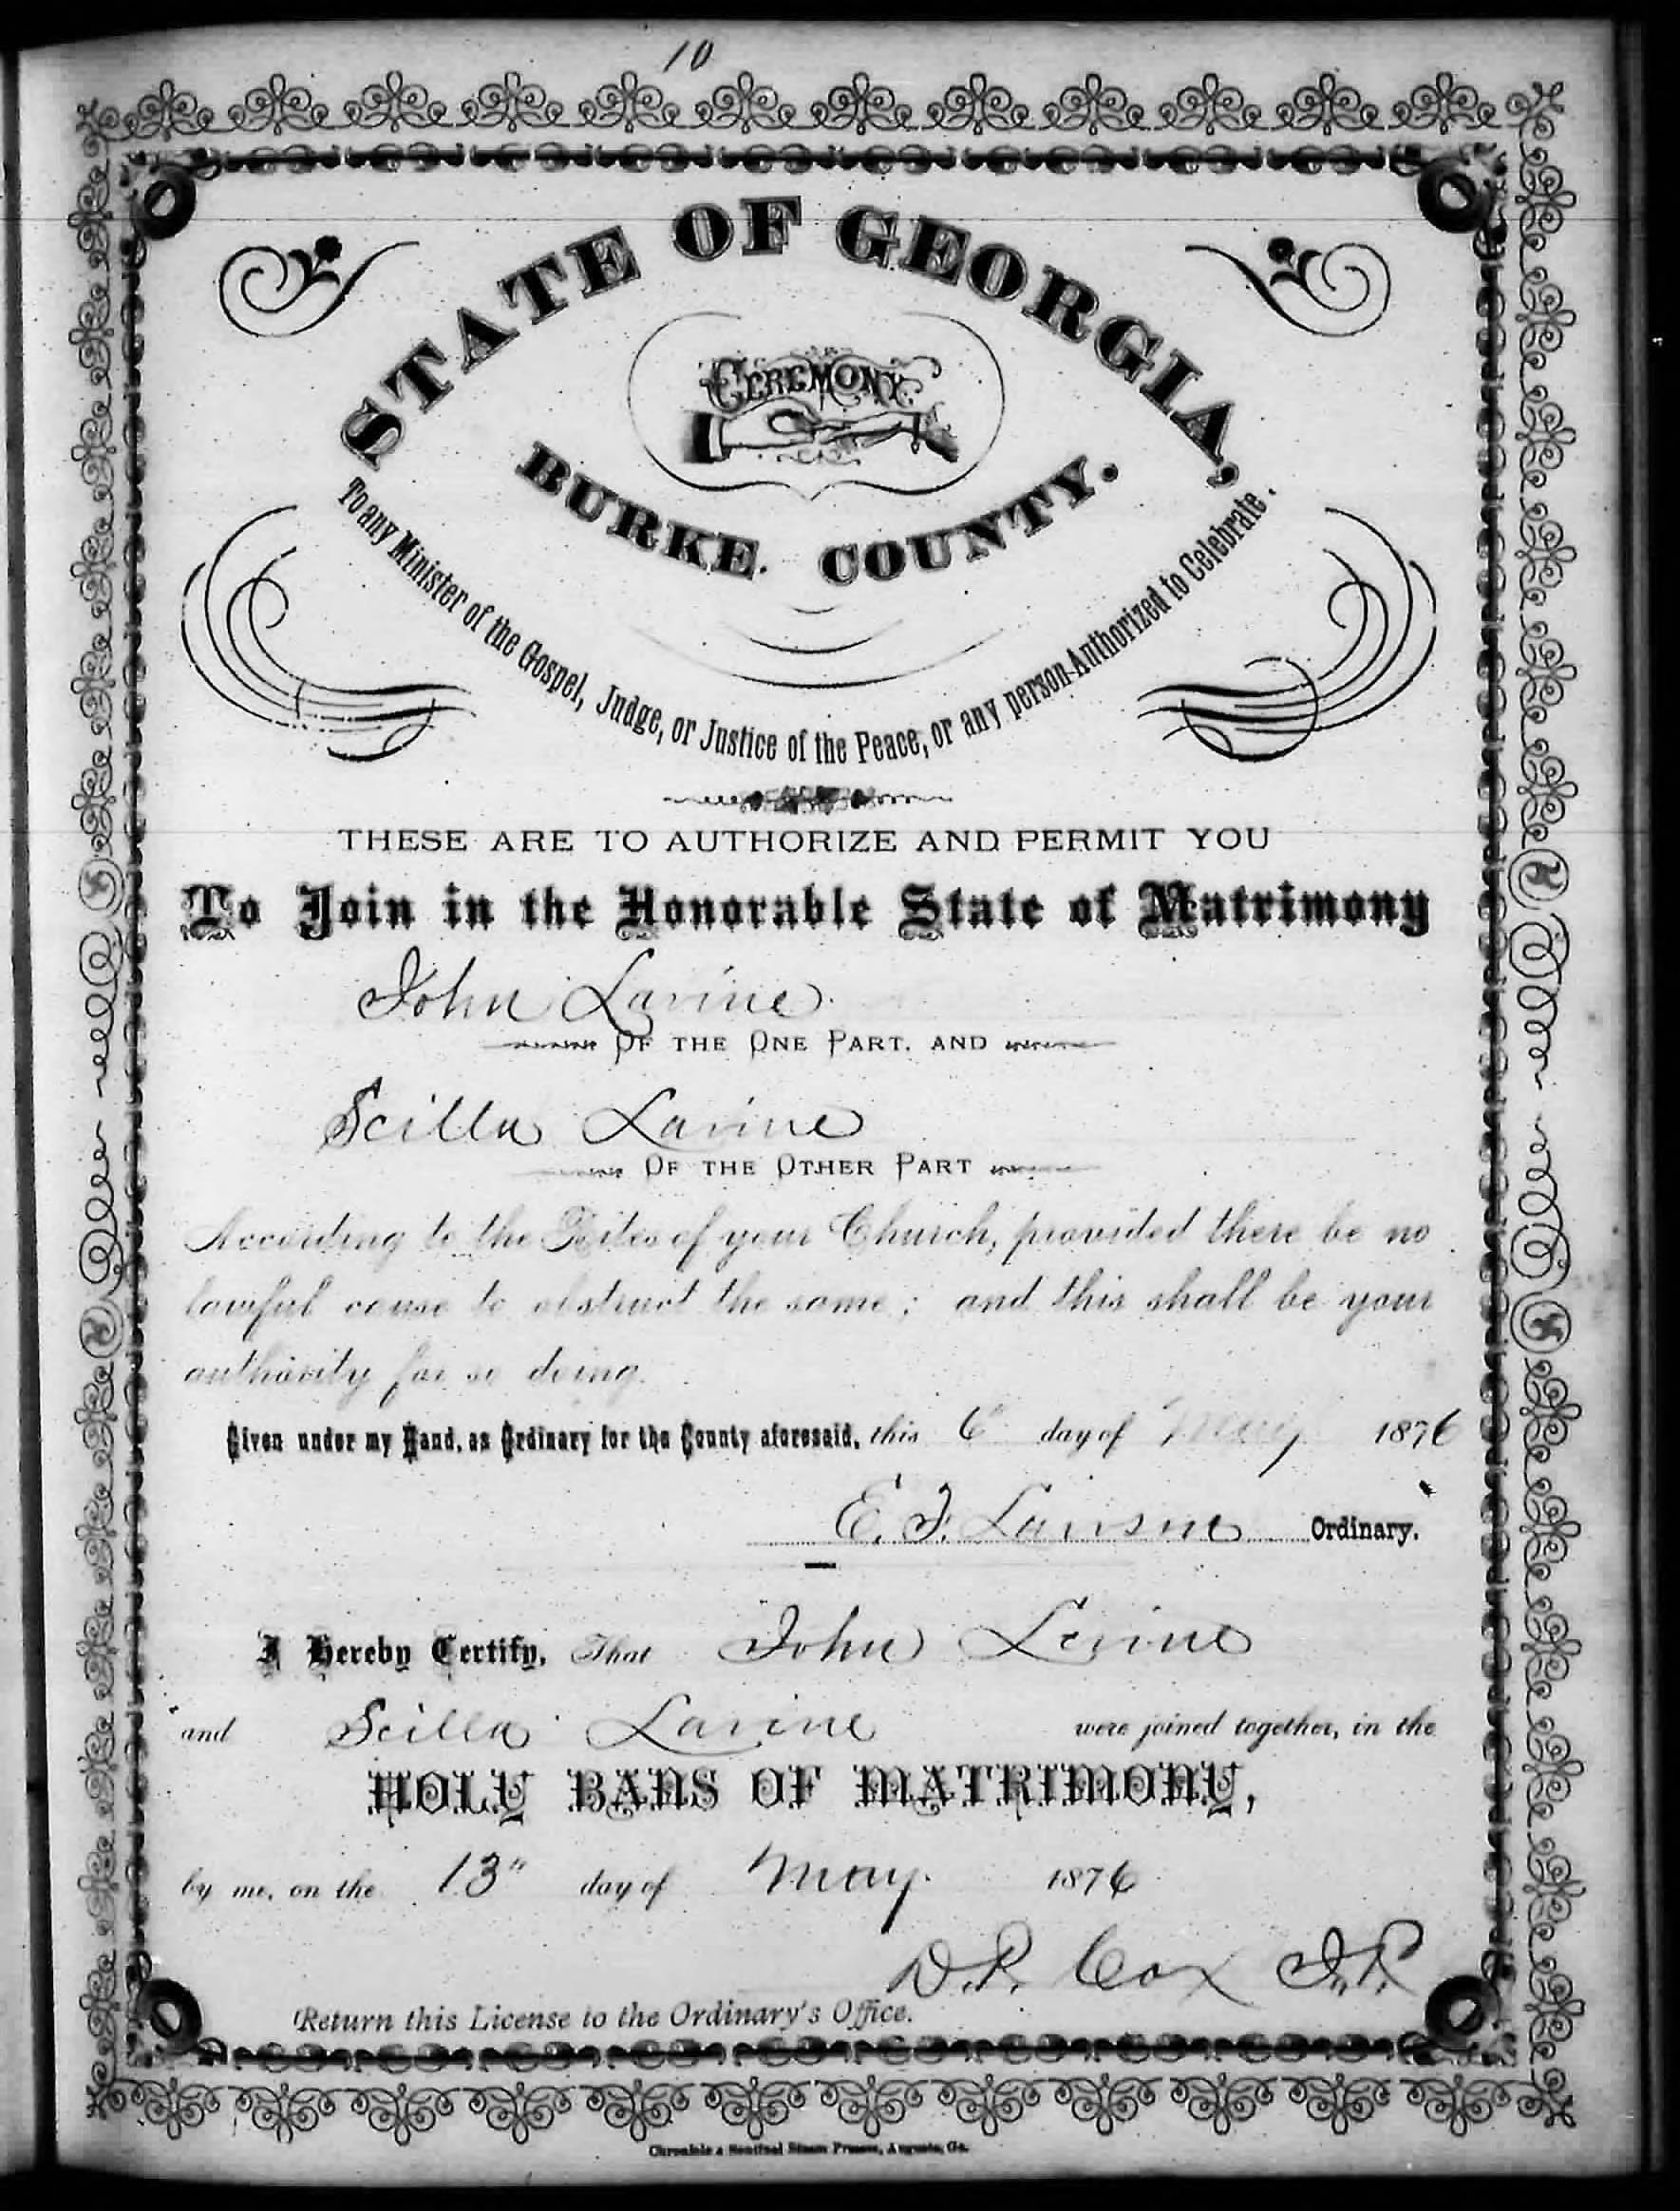 10
STATE OF GEORGIA,
CEREMONY
BURKE. COUNTY.
To any Minister of the Gospel, Judge, or Justice of the Peace, or any person Authorized to Celebrate.
THESE ARE TO AUTHORIZE AND PERMIT YOU
To Join in the Honorable State of Matrimony
John Lavine
OF THE ONE PART, AND
Scilla Lavine
OF THE OTHER PART
According to the Rites of your Church, provided there be no
lawful cause to obstruct the same; and this shall be your
authority for so doing.
Given under my Hand, as Ordinary for the County aforesaid, this 6" day of May 1876
E. F. Lawson Ordinary.
I Hereby Certify, That John Lavine
and Scilla Lavine were joined together, in the
HOLY BANS OF MATRIMONY,
by me, on the 13" day of May 1876
D.R. Cox J.P.
Return this License to the Ordinary's Office.
Chronicle & Sentinel Steam Presses, Augusta, Ga.